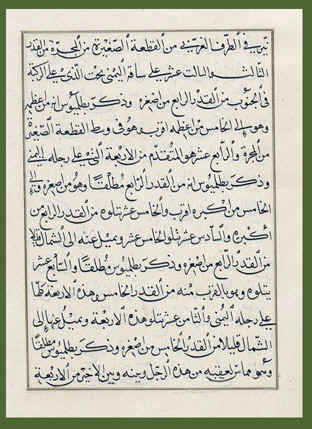 نيرين في الطرف الغربي من القطعة الصغيرة من المجرة من القدر
الثالث والثالث عشر على ساقه اليمنى تحت الذي على الركبة
في الجنوب من القدر الرابع من اصغره وذكر بطلميوس انه من اعظمه
وهو الى الخامس من اعظمه اقرب وهو في وسط القطعة الصغيرة
من المجرة والرابع عشر هو المتقدم من الاربعة التي على رجله اليمنى
وذكر بطلميوس انه من القدر الرابع مطلقا وهو من اصغره والى
الخامس من اكبره اقرب والخامس عشر يتلوه من القدر الرابع من
اكبره والسادس عشر يتلو الخامس عشر ويميل عنه الى الشمال قليلا
من القدر الرابع من اصغره وذكر بطلميوس مطلقا والسابع عشر
يتلوه وهو بالقرب منه من القدر الخامس وهذه الاربعة كلها
على رجله اليمنى والثامن عشر يتلو هذه الاربعة ويميل عنها الى
الشمال قليلا من القدر الخامس من اصغره وذكر بطلميوس مطلقا
وهو مماس لعقبه من هذه الرجل وبينه وبين الاخير من الاربعة